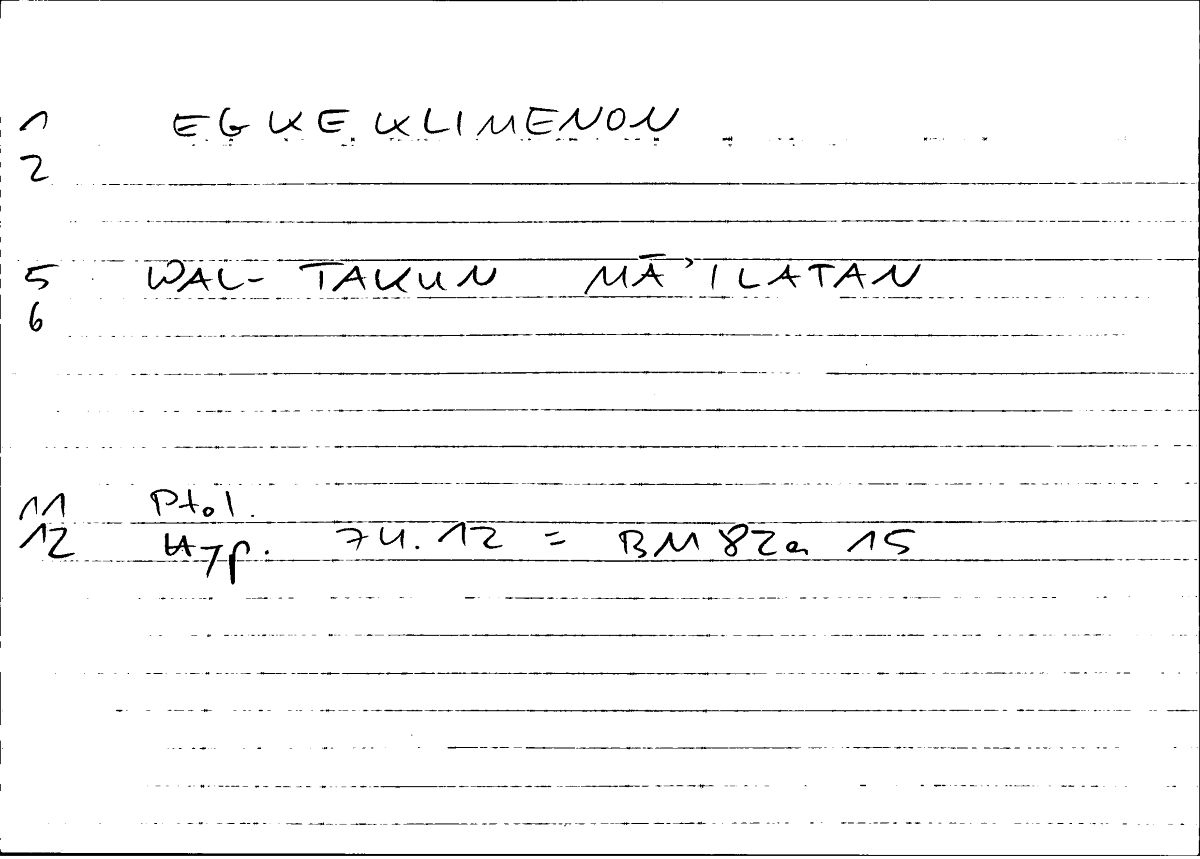 1 EGKEKLIMENON
2
5 WAL- TAKUN MĀ'ILATAN
6
11 Ptol.
12 Hyp. 74.12 = BM 82a 15